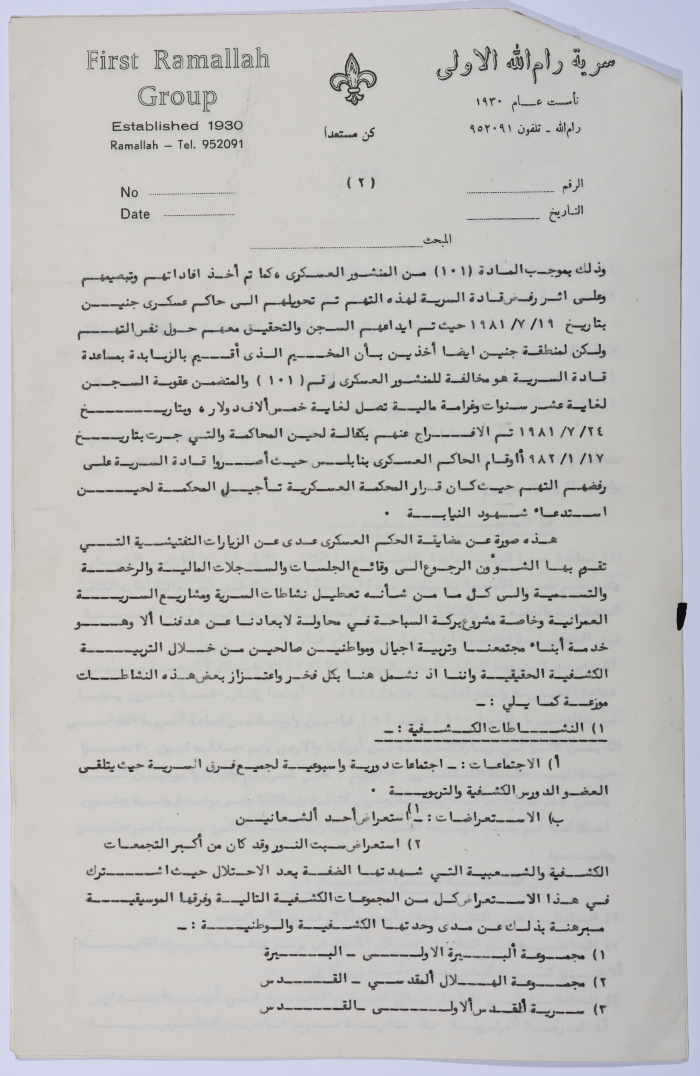 First Ramallah
Group
Established 1930
Ramallah — Tel. 952091
كن مستعداً
سرية رام الله الاولى
تأسست عـــام ١٩٣٠
رام الله ـ تلفون ٩٥٢٠٩١
No
Date
(٢)
الرقم
التاريخ
المبحث
وذلك بموجب المادة (١٠١) من المنشور العسكرى ، كما تم أخذ افاداتهم وتبصيمهم
وعلى اثر رفض قادة السرية لهذه التهم تم تحويلهم الى حاكم عسكرى جنيـــن
بتاريخ ١٩/ ٧/ ١٩٨١ حيث تم ايداعهم السجن والتحقيق معهم حول نفس التهـــم
ولكن لمنطقة جنين ايضا أخذيــن بـأن المخيـم الـذى أقـيـم بالزبـابدة بمساعدة
قـادة السرية هو مخالفة للمنشور العسكرى رقم (١٠١) والمتضمن عقوبة السجــن
لغاية عشر سنوات وغرامة ماليـة تصل لغاية خمس ألاف دولار ، وبتاريـــــخ
٢٤/ ٧/ ١٩٨١ تـم الافـــراج عنهـم بكفالـة لحيـن المحاكمـة والتي جرت بتاريــخ
١٧/ ١/ ١٩٨٢ أوقام الحاكم العسكرى بنابلـس حيث أصـــروا قـادة السريـة على
رفضهم التهم حيث كـان قـرار المحكمة العسكريـة تـأجيـل المحكمـة لحيـــن
استدعـاء شهـود النيابـــة .
هـذه صورة عـن مضايقـة الحكـم العسكرى عـدى عـن الزيارات التفتيشيـة التـــي
تقـوم بهـا الشـؤون الرجـوع الـى وقائـع الجلسـات والسـجلات الماليـة والرخصـة
والتسمية والـى كـل مـا مـن شـأنـه تعطيـل نشاطات السرية ومشاريع السريـــة
العمرانيـة وخاصـة مشروع بركـة السباحـة فـي محاولـة لابعادنـا عـن هدفنـا ألا وهـــو
خدمـة أبنـاء مجتمعنــا وتربيـة اجيـال ومواطنيـن صالحيـن مـن خـلال التربيـــة
الكشفيـة الحقيقيـة واننـا اذ نشمـل هنـا بكـل فخـر واعتـزاز بعض هـذه النشاطـات
موزعـة كمـا يلـي : ـ
١) النشــاطات الكـشـفيـة : ـ
أ) الاجتماعات : ـ اجتماعات دورية واسبوعيـة لجميع فـرق السريـة حيث يتلقـى
العضو الدورس الكشفية والتربويــة .
ب) الاستـعراضات : ـ ١) استعراض أحـد ألشـعانيـن
٢) استعراض سبت النـور وقد كان من أكبر التجمعات
الكشفية والشعبيـة التـي شهدتهـا الضفـة بعـد الاحتـلال حيـث اشـترك
فـي هـذا الاستـعراض كـل مـن المجموعـات الكشفيـة التاليـة وفرقهـا الموسيقيـة
مبرهنـة بذلـك عـن مـدى وحدتهـا الكشـفيـة والوطنيـــة : ـ
١) مجموعـة ألبيـرة الاولـــى ـ البـــيرة
٢) مجموعـة الهـلال ألمقدسـي ـ القـــدس
٣) سريـة ألقـدس ألاولـــى ـ القـــدس